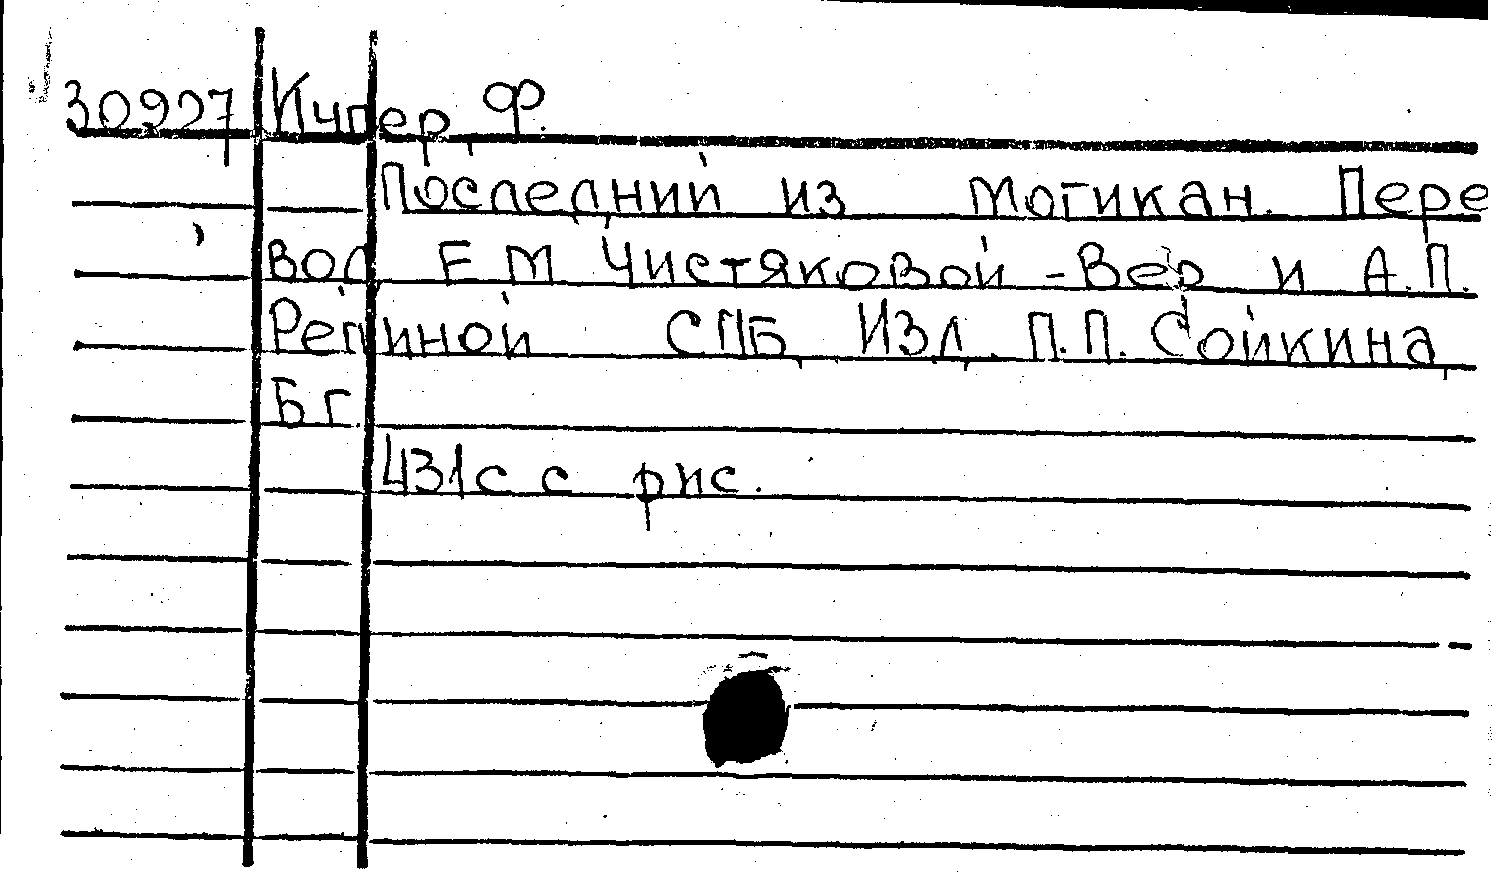 30927 Купер, Ф.
Последний из могикан. Пере
вод Е М Чистяковой-Вер и А.П.
Репиной СПБ, Изд. П.П. Сойкина,
Б г.
431с с рис.